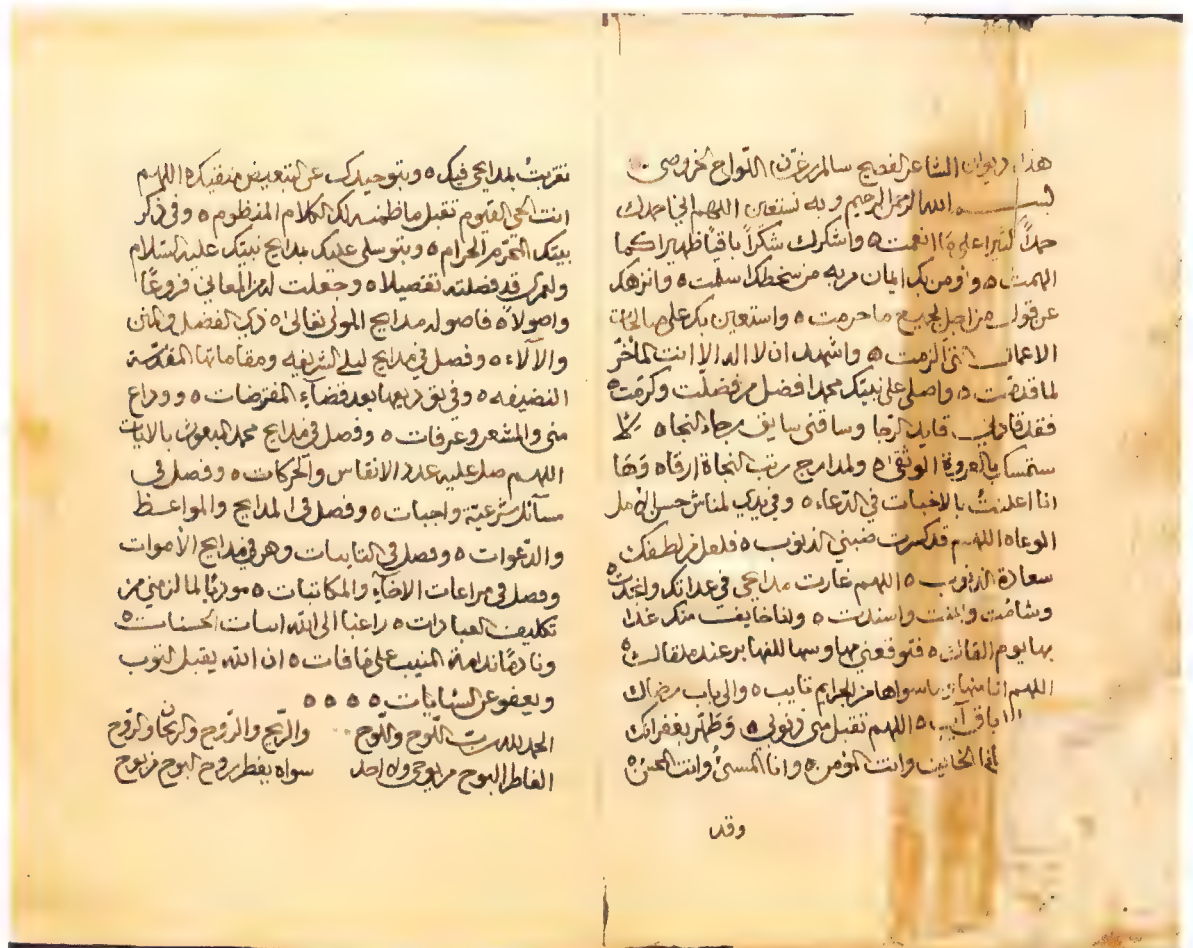 هذا ديوان الشاعر الفصيح سالم بن غسان اللواح الخروصي
بسم الله الرحمن الرحيم وبه نستعين اللهم اني احمدك
حمداً كثيرا على ما انعمت ه واشكرك شكراً باقياً ظهيرا كما
الهمت ه واومن بك ايمان من به من سخطك اسلمت ه وانزهك
عن قول من احل لجميع ما حرمت ه واستعين بك على صالحات
الاعمال التي الزمت ه واشهد ان لا اله الا انت المأخر
لما قدمت ه واصلي على نبيك محمد افضل من فضلت وكرمت ه
فقد قادني قايد الرجا وساقني سايق رجاء النجاه
ستمسك بالعروة الوثقى ه ولمدارج رتب النجاة ارقاه وها
انا اعلنت بالاخبات في الدعاء ه وفي يدي حسن الامل
الوعاه اللهم قد كبرت ذنبي الذنوب ه فلعل من لطفك
سعادة الذنوب ه اللهم غارت مدايحي في عداتك وانجدت ه
وشامت وايمنت واسندت ه وانا خايف منك غدا
بها يوم القالت ه فتوقعني بها
اللهم انا منها وما سواها من الجرايم تايب ه والى باب رضاك
اللهم تقبل مني ذنوبي ه وطهر بغفرانك
انا الخايف وانت المؤمن ه وانا المسئ وانت المحسن ه
وقد
تقربت بمدايحي فيك ه وبتوحيدك عن التبعيض منفيك ه اللهم
انت الحي القيوم تقبل ما نظمته لك الكلام المنظوم ه وفي ذكر
بيتك المحترم الحرام ه وبتوسلي عليك بمدايح نبيك عليه السلام
ولعمرك قد فصلته تفصيلا ه وجعلت له من المعاني فروعاً
واصولا ه فاصوله مدايح المولى تعالى ه ذي الفضل والمنن
والآلاء ه وفصل في مدايح ليلى الشريفه ومقاماتها المقدسة
النضيفه ه وفي توديعها بعد قضاء المفترضات ه ووداع
منى والمشعر وعرفات ه وفصل في مدايح محمد المبعوث بالايات
اللهم صل عليه عدد الانفاس والحركات ه وفصل في
مسآئل شرعية واجبات ه وفصل في المدايح والمواعظ
والدعوات ه وفصل في التابينات وهو في مدايح الاموات
وفصل في مراعات الاخاء والمكاتبات ه مودياً لما لزمني من
تكليف العبادات ه راغبا الى الله اسات الحسنات ه
ونادماً ندامة المنيب على ما فات ه ان الله يقبل التوب
ويعفو عن السيايات ه ه ه ه
الحمد لله رب اللوح واللوح والريح والروح والريحان والروح
الفاطر البوح من يوحى ولا احد سواه يفطر بروح البوح من بوح